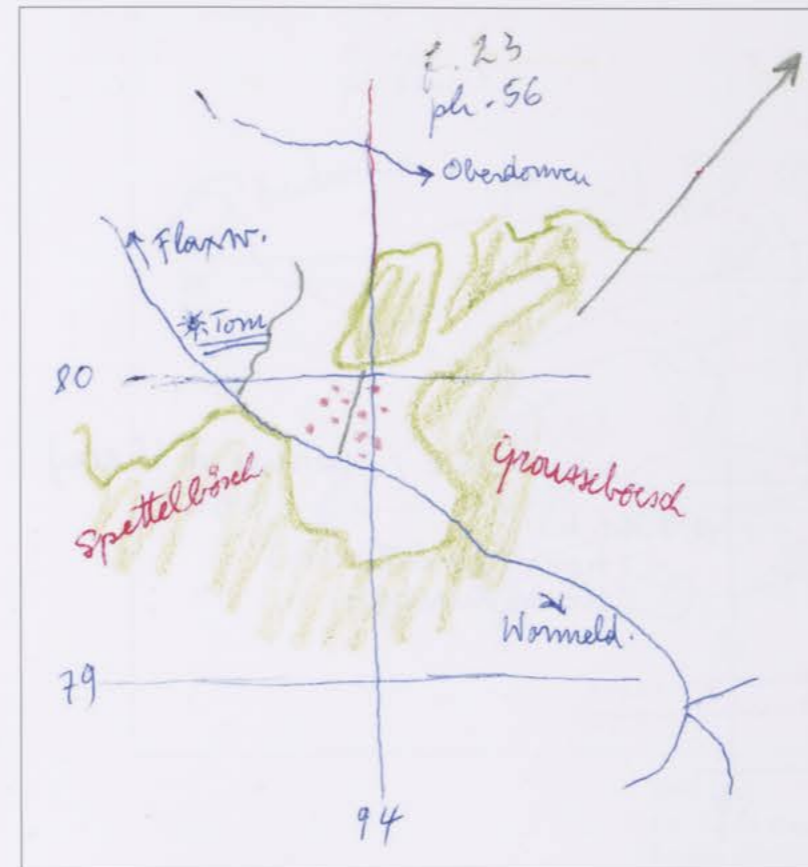 f. 23
ph. 56
Oberdonven
Flaxw.
Tom
80
Spettelbösch
Grousseboesch
Wormeld.
79
94